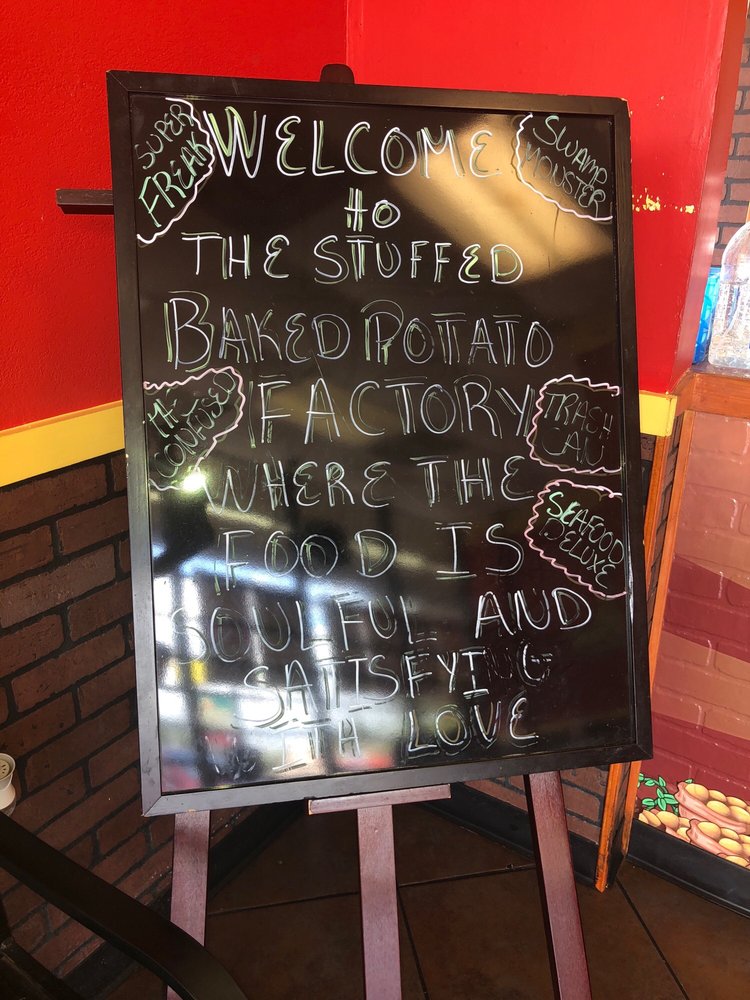 SUPER
FREAK
WELCOME
SWAMP
MONSTER
to
THE STUFFED
BAKED POTTATO
I'M
CONFUSED
FACTORY
TRASH
CAN
WHERE THE
FOOD IS
SEAFOOD
DELUXE
SOULFUL AND
SATISFYING
WITH LOVE